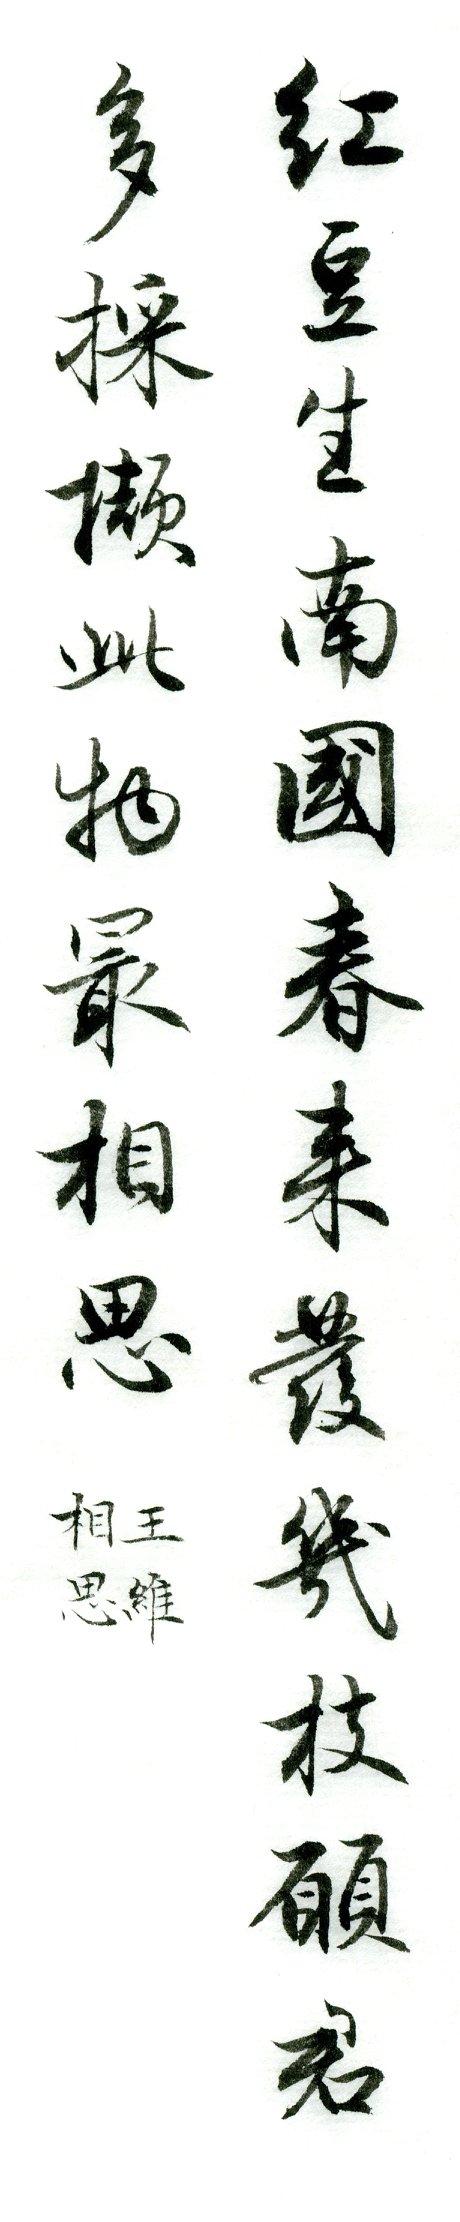 紅豆生南國春来發幾枝願君
多採擷此物最相思
王維
相思